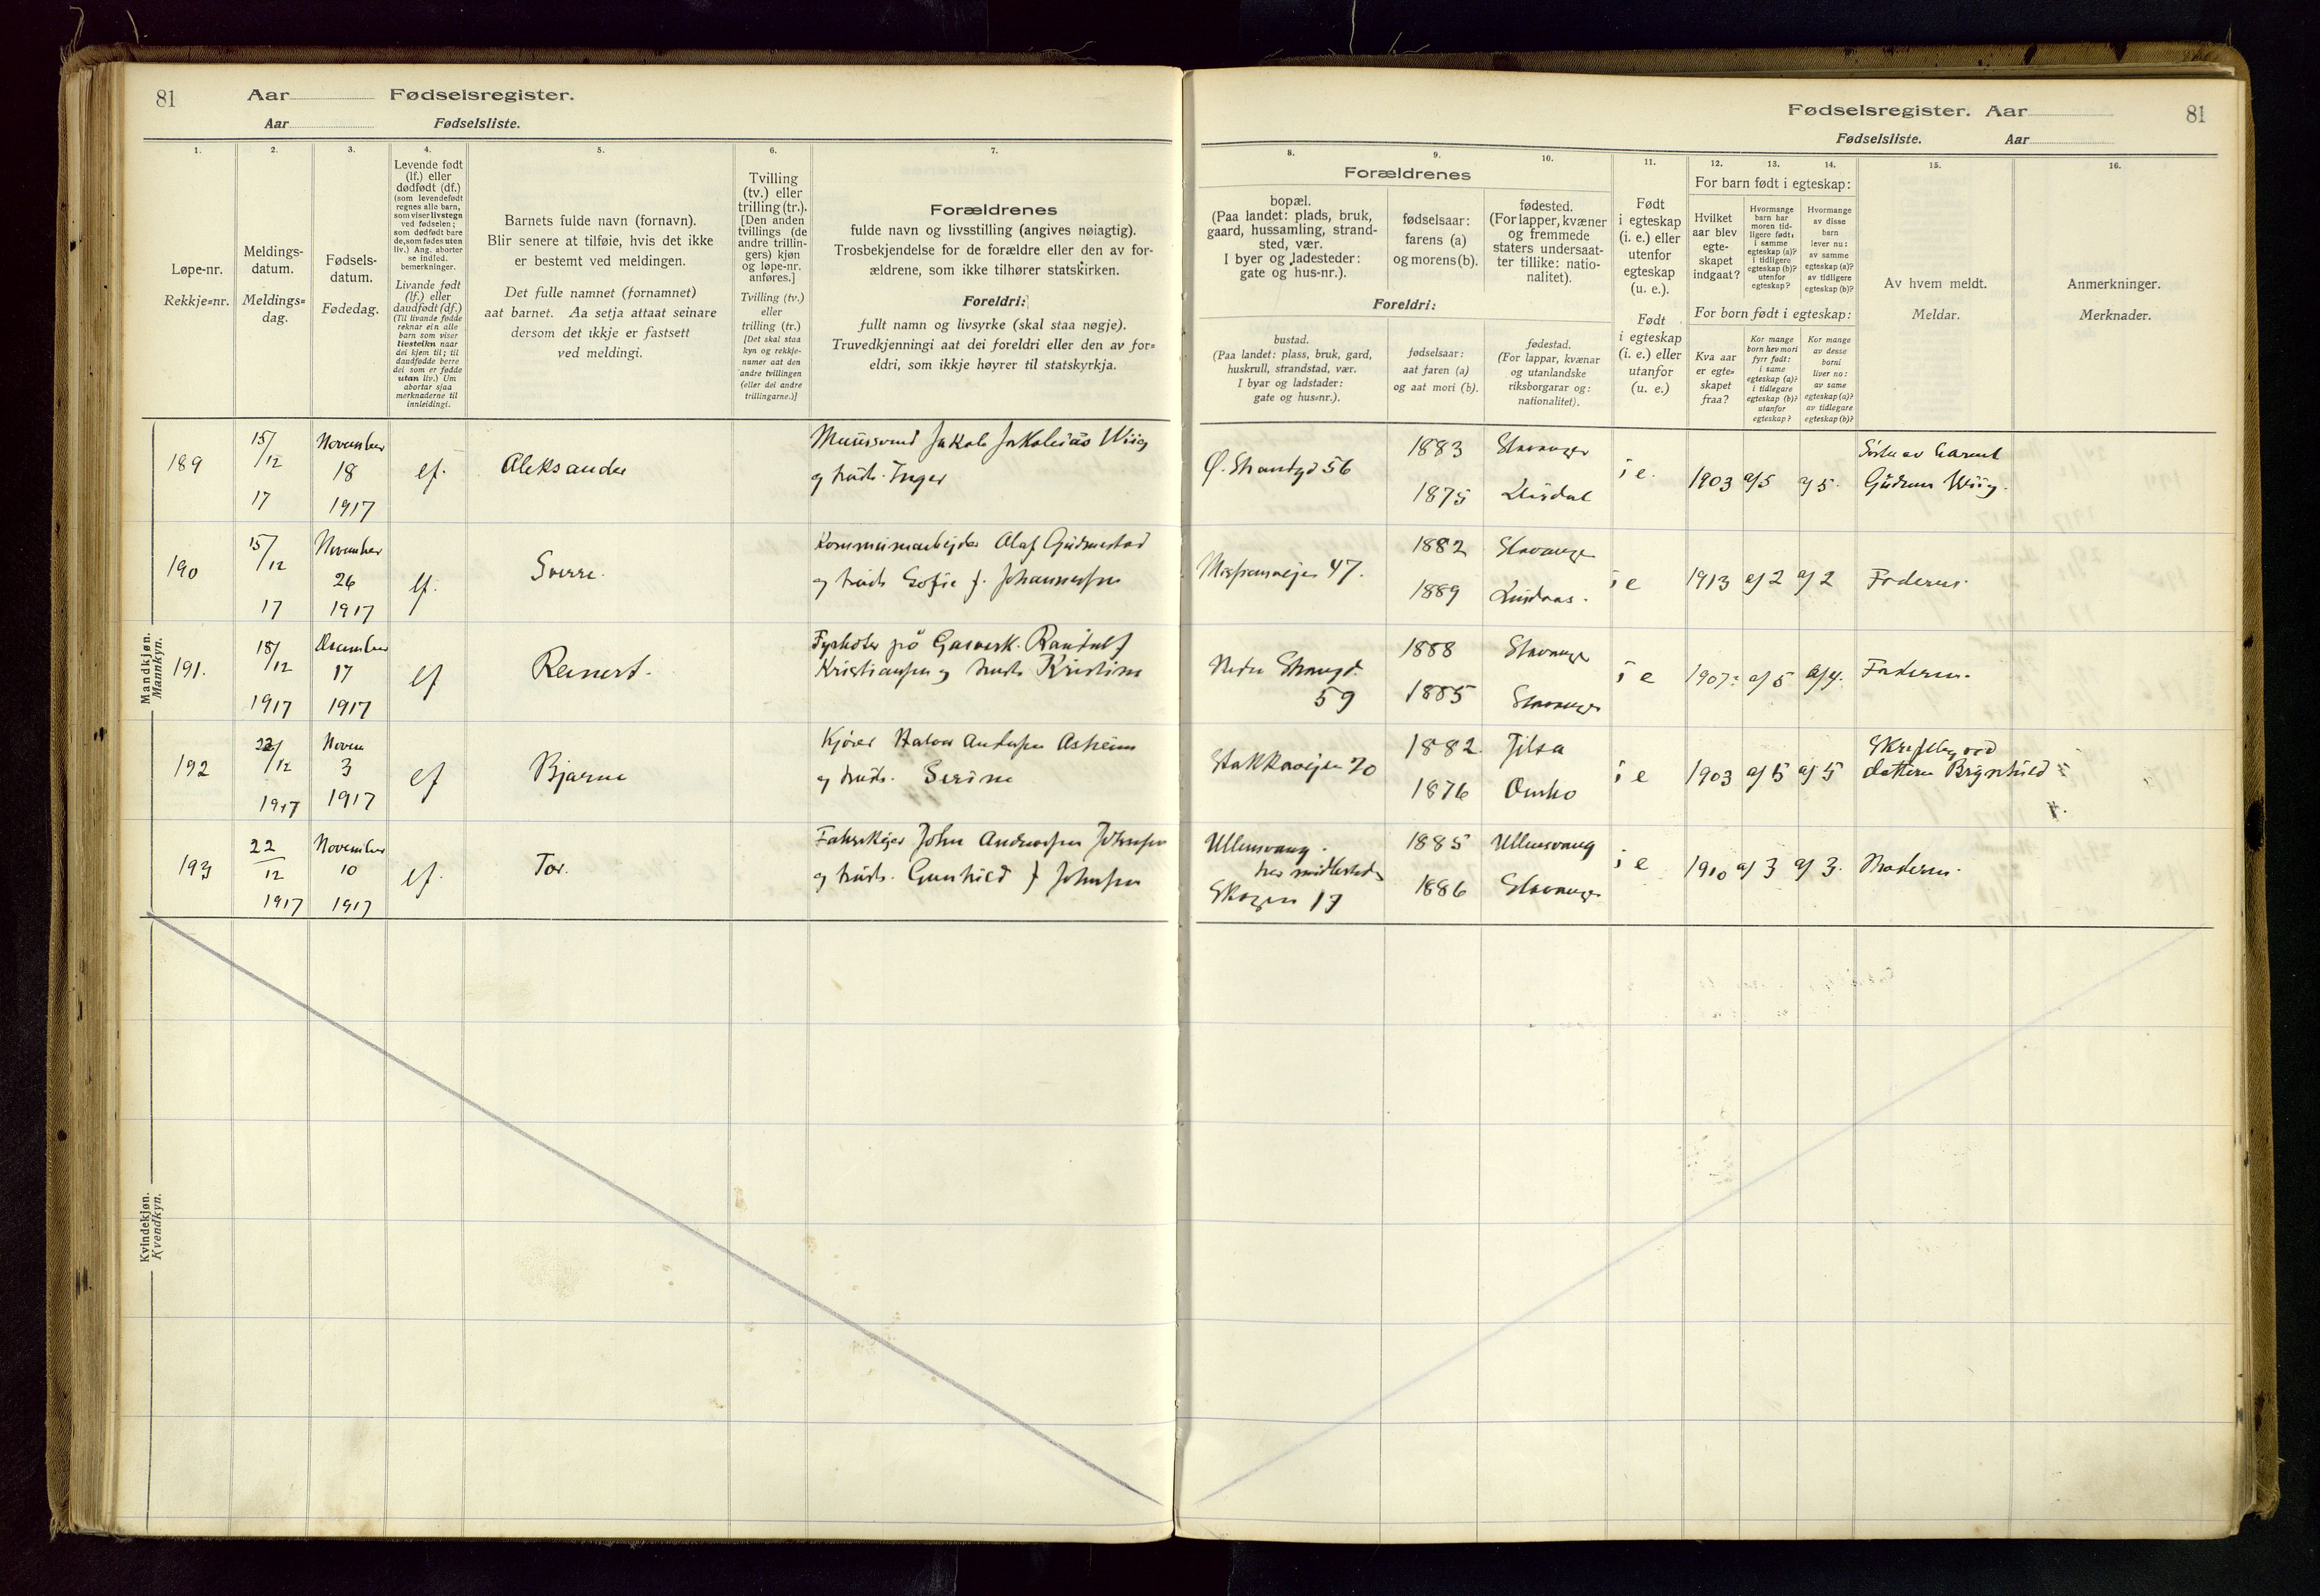 81 Aar Fødselsregister.
Aar Fødselsliste.
Fødselsregister. Aar 81
Fødselsliste. Aar
1.
Løpe-nr.
Rekkje=nr.
2.
Meldings-
datum.
Meldings=
dag.
3.
Fødsels-
datum.
Fødedag.
4.
Levende født
(lf.) eller
dødfødt (df.)
(som levendefødt
regnes alle barn,
som viser livstegn
ved fødselen;
som dødfødt bare
de, som fødes uten
liv.) Ang. aborter
se indled.
bemerkninger.
Livande født
(lf.) eller
daudfødt (df.)
(Til livande fødde
reknar ein alle
barn som viser
livsteikn naar
dei kjem til; til
daudfødde berre
dei som er fødde
utan liv.) Um
abortar sjaa
merknaderne til
innleidingi.
5.
Barnets fulde navn (fornavn).
Blir senere at tilføie, hvis det ikke
er bestemt ved meldingen.
Det fulle namnet (fornamnet)
aat barnet. Aa setja attaat seinare
dersom det ikkje er fastsett
ved meldingi.
6.
Tvilling
(tv.) eller
trilling (tr.).
[Den anden
tvillings (de
andre trillin-
gers) kjøn
og løpe-nr.
anføres.]
Tvilling (tv.)
eller
trilling (tr.)
[Det skal staa
kyn og rekkje-
numer aat den
andre tvillingen
(eller dei andre
trillingarne.)]
7.
Forældrenes
fulde navn og livsstilling (angives nøiagtig).
Trosbekjendelse for de forældre eller den av for-
ældrene, som ikke tilhører statskirken.
Foreldri:
fullt namn og livsyrke (skal staa nøgje).
Truvedkjenningi aat dei foreldri eller den av for=
eldri, som ikkje høyrer til statskyrkja.
Forældrenes
8.
bopæl.
(Paa landet: plads, bruk,
gaard, hussamling, strand-
sted, vær.
I byer og ladesteder:
gate og hus-nr.).
9.
fødselsaar:
farens (a)
og morens (b).
10.
fødested.
(For lapper, kvæner
og fremmede
staters undersaat-
ter tillike: natio-
nalitet).
Foreldri:
bustad.
(Paa landet: plass, bruk, gard,
huskrull, strandstad, vær.
I byar og ladstader:
gate og hus=nr.).
fødselsaar:
aat faren (a)
og aat mori (b).
fødestad.
(For lappar, kvænar
og utanlandske
riksborgarar og:
nationalitet).
11.
Født
i egteskap
(i. e.) eller
utenfor
egteskap
(u. e.).
Født
i egteskap
(i. e.) eller
utanfor
(u. e.)
For barn født i egteskap:
12.
Hvilket
aar blev
egte-
skapet
indgaat?
13.
Hvormange
barn har
moren tid-
ligere født:
i samme
egteskap (a)?
i tidligere
egteskap (b)?
utenfor
egteskap?
14.
Hvormange
av disse
barn
lever nu:
av samme
egteskap (a)?
av tidligere
egteskap (b)?
For born født i egteskap:
Kva aar
er egte=
skapet
fraa?
Kor mange
born hev mori
fyrr født:
i same
egteskap (a)?
i tidlegare
egteskap (b)?
utanfor
egteskap?
Kor mange
av desse
borni
liver no:
av same
egteskap (a)?
av tidlegare
egteskap (b)?
15.
Av hvem meldt.
Meldar.
16.
Anmerkninger.
Merknader.
Mandkjøn.
Mannkyn.
189 15/12 17 November 18 1917 lf. Aleksander
Murersvend Jakob Jakobsen Wiig
og hust. Inger
Ø. Strandgd 56 1883 Stavanger
1875
i e. 1903 a/5 a/5.
Søster av barnet
Gudrun Wiig.
190 15/12 17 November 26 1917 lf. Sverre.
Kommunearbejder Olaf Gudmestad
og hust. Sofie f. Johannessen
Misjonsvejen 47. 1882 Stavanger
1889 Lindaas.
i e 1913 a/2 a/2 Faderen.
191. 18/12 1917 December 17 1917 lf Reinert.
Fyrbøter på Gasverk. Randulf
Kristiansen og hust. Kristine
Nedre Strandgd.
59
1888 Stavanger
1885 Stavanger
i e 1907. a/5 a/4. Faderen.
192 22/12 1917 Novem 3 1917 lf Bjarne
Kjører Halvor Andersen Asheim
og hust. Serine
Stokkaveien 70 1882. Jelsa
1876
i e 1903 a/5 a/5
Skriftlig ved
datteren Brynhild
193 22/12 1917 November 10 1917 lf. Tor.
John Andreassen Johnsen
og hust. Gunhild f Johnsen
Ullensvang.
her midlertidig
Skogen 17
1885 Ullensvang
1886 Stavanger
i e 1910 a/3 a/3. Moderen.
Kvindekjøn.
Kvendkyn.